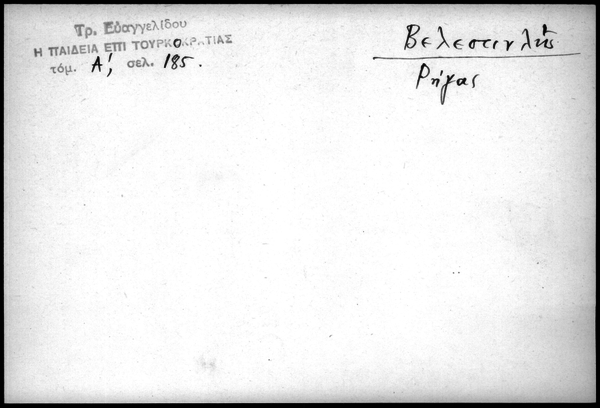 Τρ. Εὐαγγελίδου
Η ΠΑΙΔΕΙΑ ΕΠΙ ΤΟΥΡΚΟΚΡΑΤΙΑΣ
τόμ. Α', σελ. 185.
Βελεστινλῆς
Ρήγας